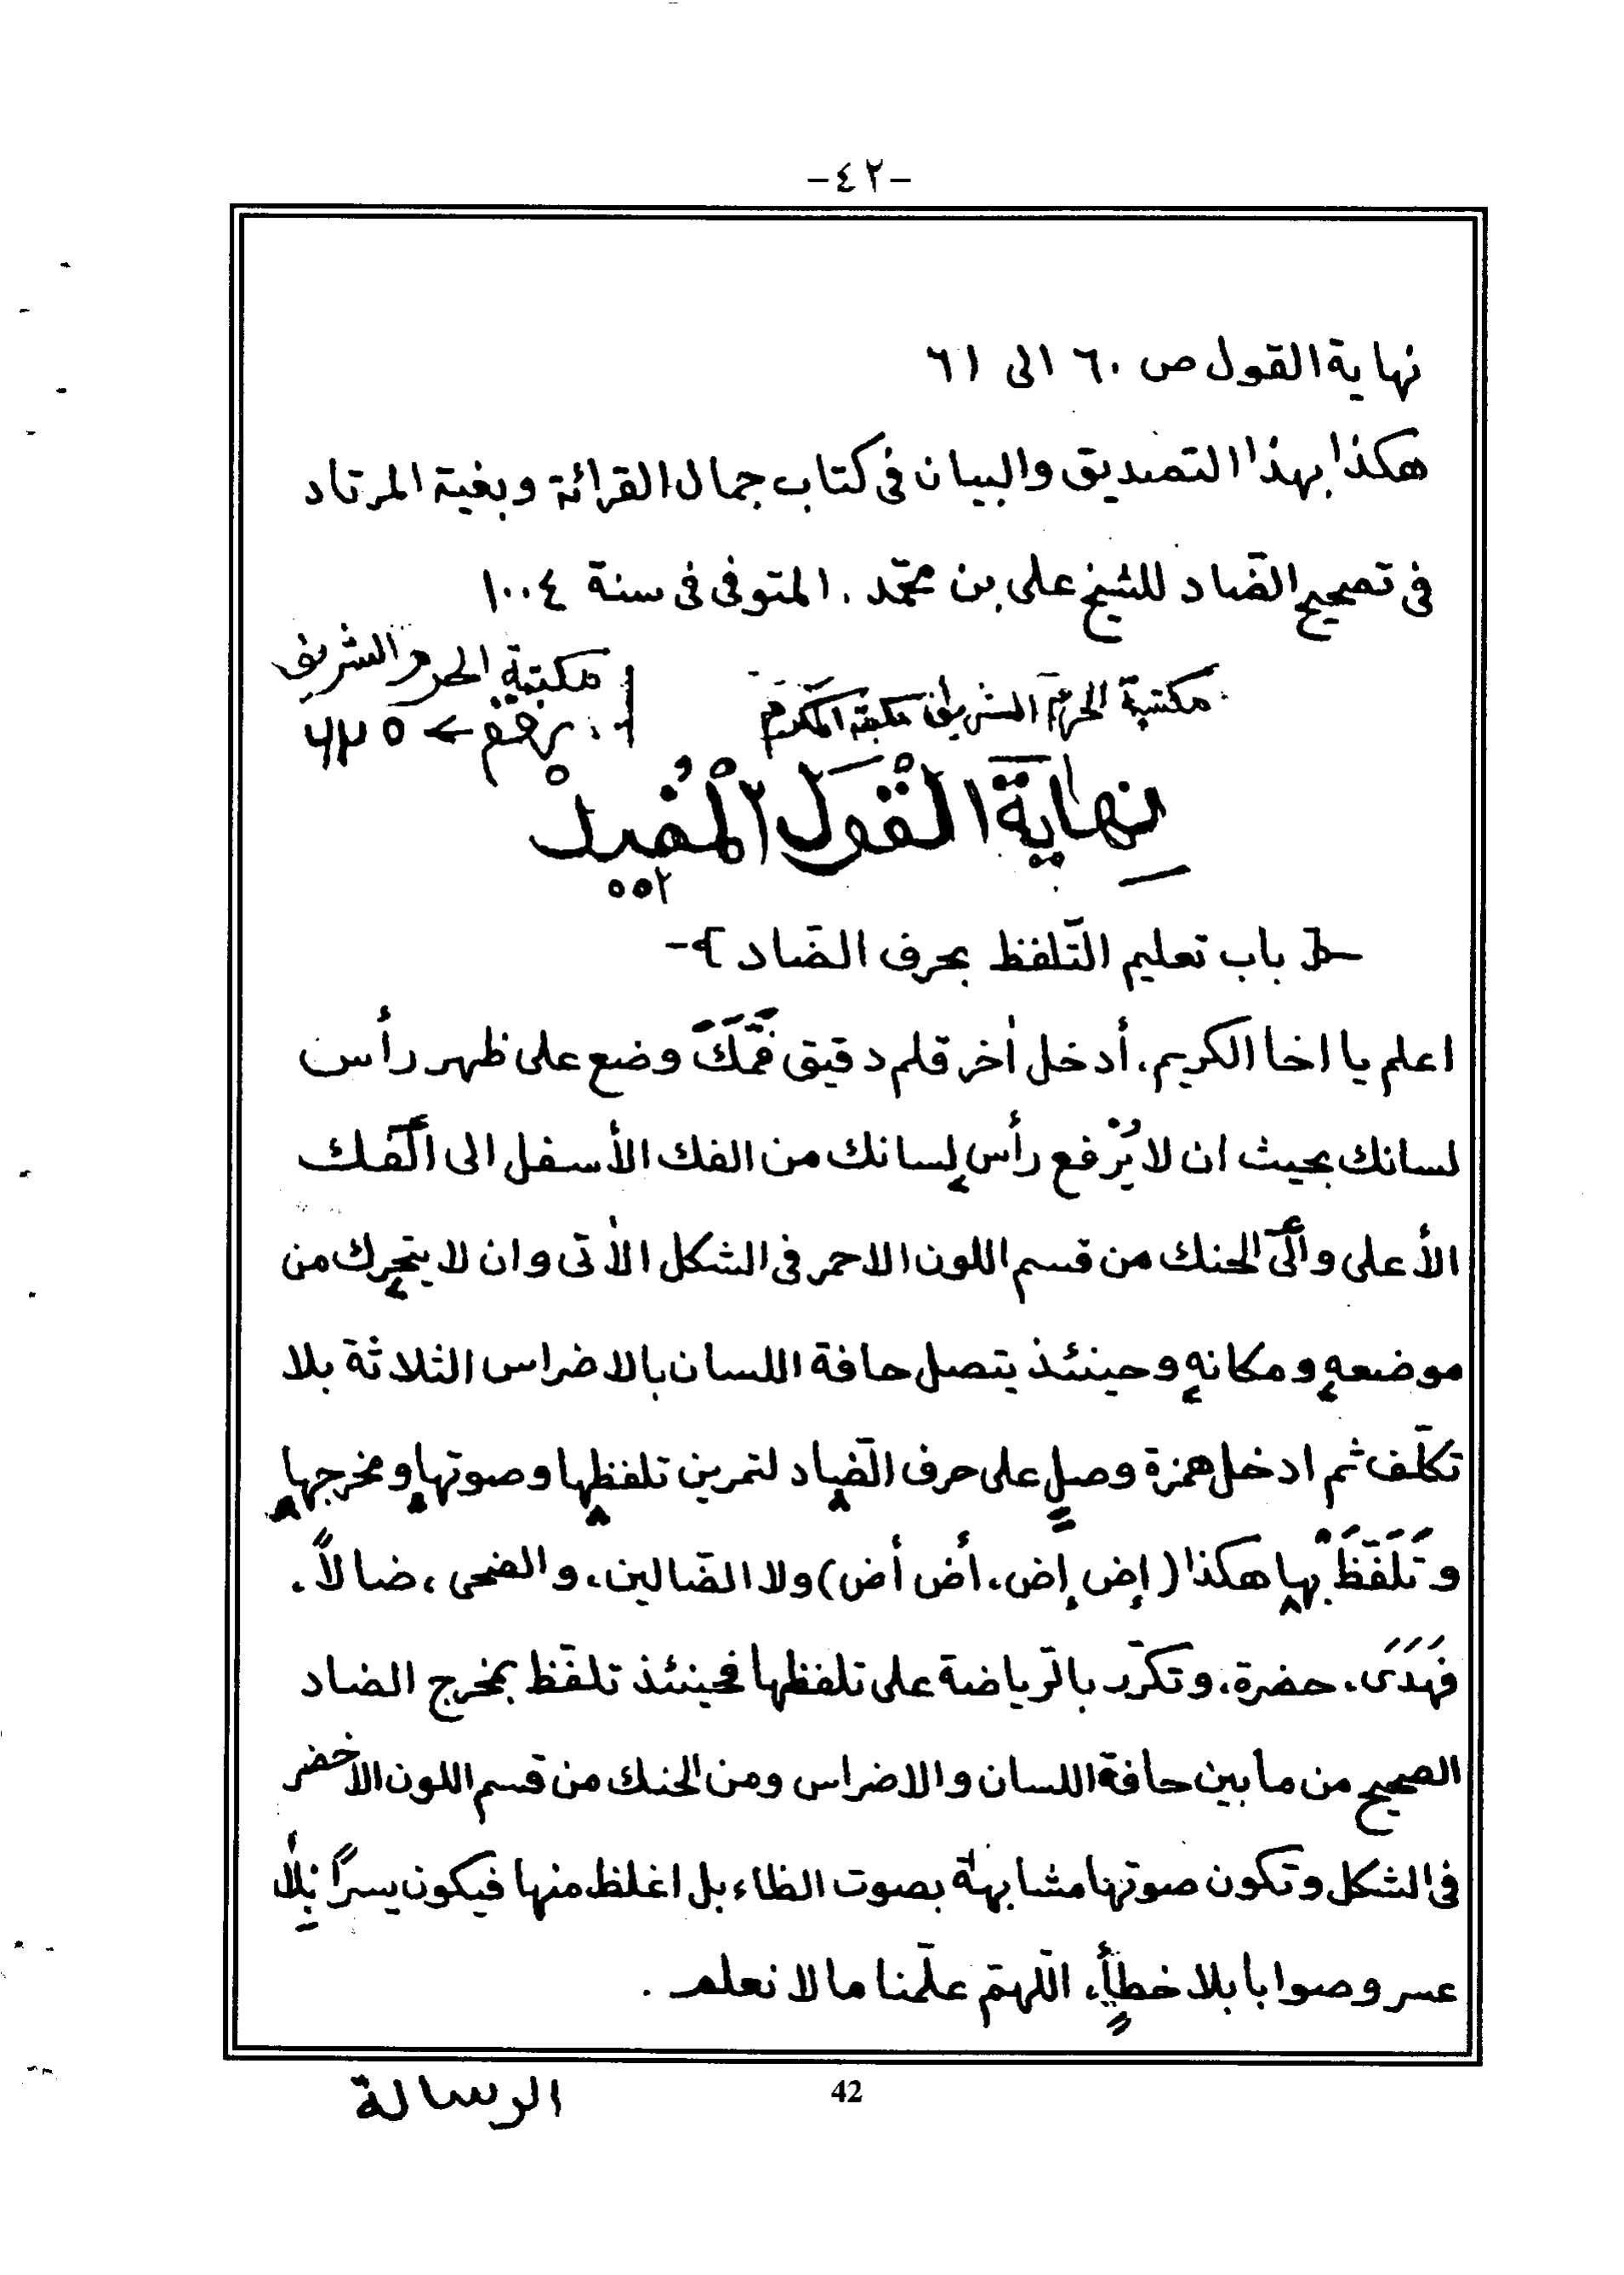 -٤٢-
نهاية القول ص ٦٠ الى ٦١
هكذا بهذا التصديق والبيان في كتاب جمال القرائة وبغية المرتاد
في تصحيح الضاد للشيخ على بن محمّد . المتوفى في سنة ١٠٠٤
مكتبة الحرم الشريف مكة المكرمة
مكتبة الحرم الشريف
برقم
نهاية القول المفيد
باب تعليم التّلفظ بحرف الضّاد
اعلم يا اخا الكريم، أدخل أخر قلم دقيق فَمَكَ وضع على ظهر رأس
لسانك بحيث ان لا يُرْفع رأس لِسانك من الفك الأسفل الى الْفَك
الأعلى والَى الحنك من قسم اللون الاحمر في الشكل الأتى وان لا يتحرك من
موضعهِ ومكانهِ وحينئذ يتصل حافة اللسان بالاضراس الثلاثة بلا
تكلّف ثم ادخل همزة وصلٍ على حرف الضّاد لتمرين تلفظها وصوتها ومخرجها
وَتَلَفَّظْ بها هكذا (إض إض، أض أض) ولا الضّالين، والضحى، ضالاً.
فَهَدَى، حضرة، وتكرّر بالرّياضة على تلفظها فحينئذ تلفّظ بمخرج الضاد
الصحيح من ما بين حافة اللسان والاضراس ومن الحنك من قسم اللون الأخضر
في الشكل وتكون صوتها مشابهة بصوت الظاء بل اغلظ منها فيكون يسراً بِلا
عسر وصوابا بلا خطأٍ، اللّهمّ علّمنا ما لا نعلم .
42
الرسالة